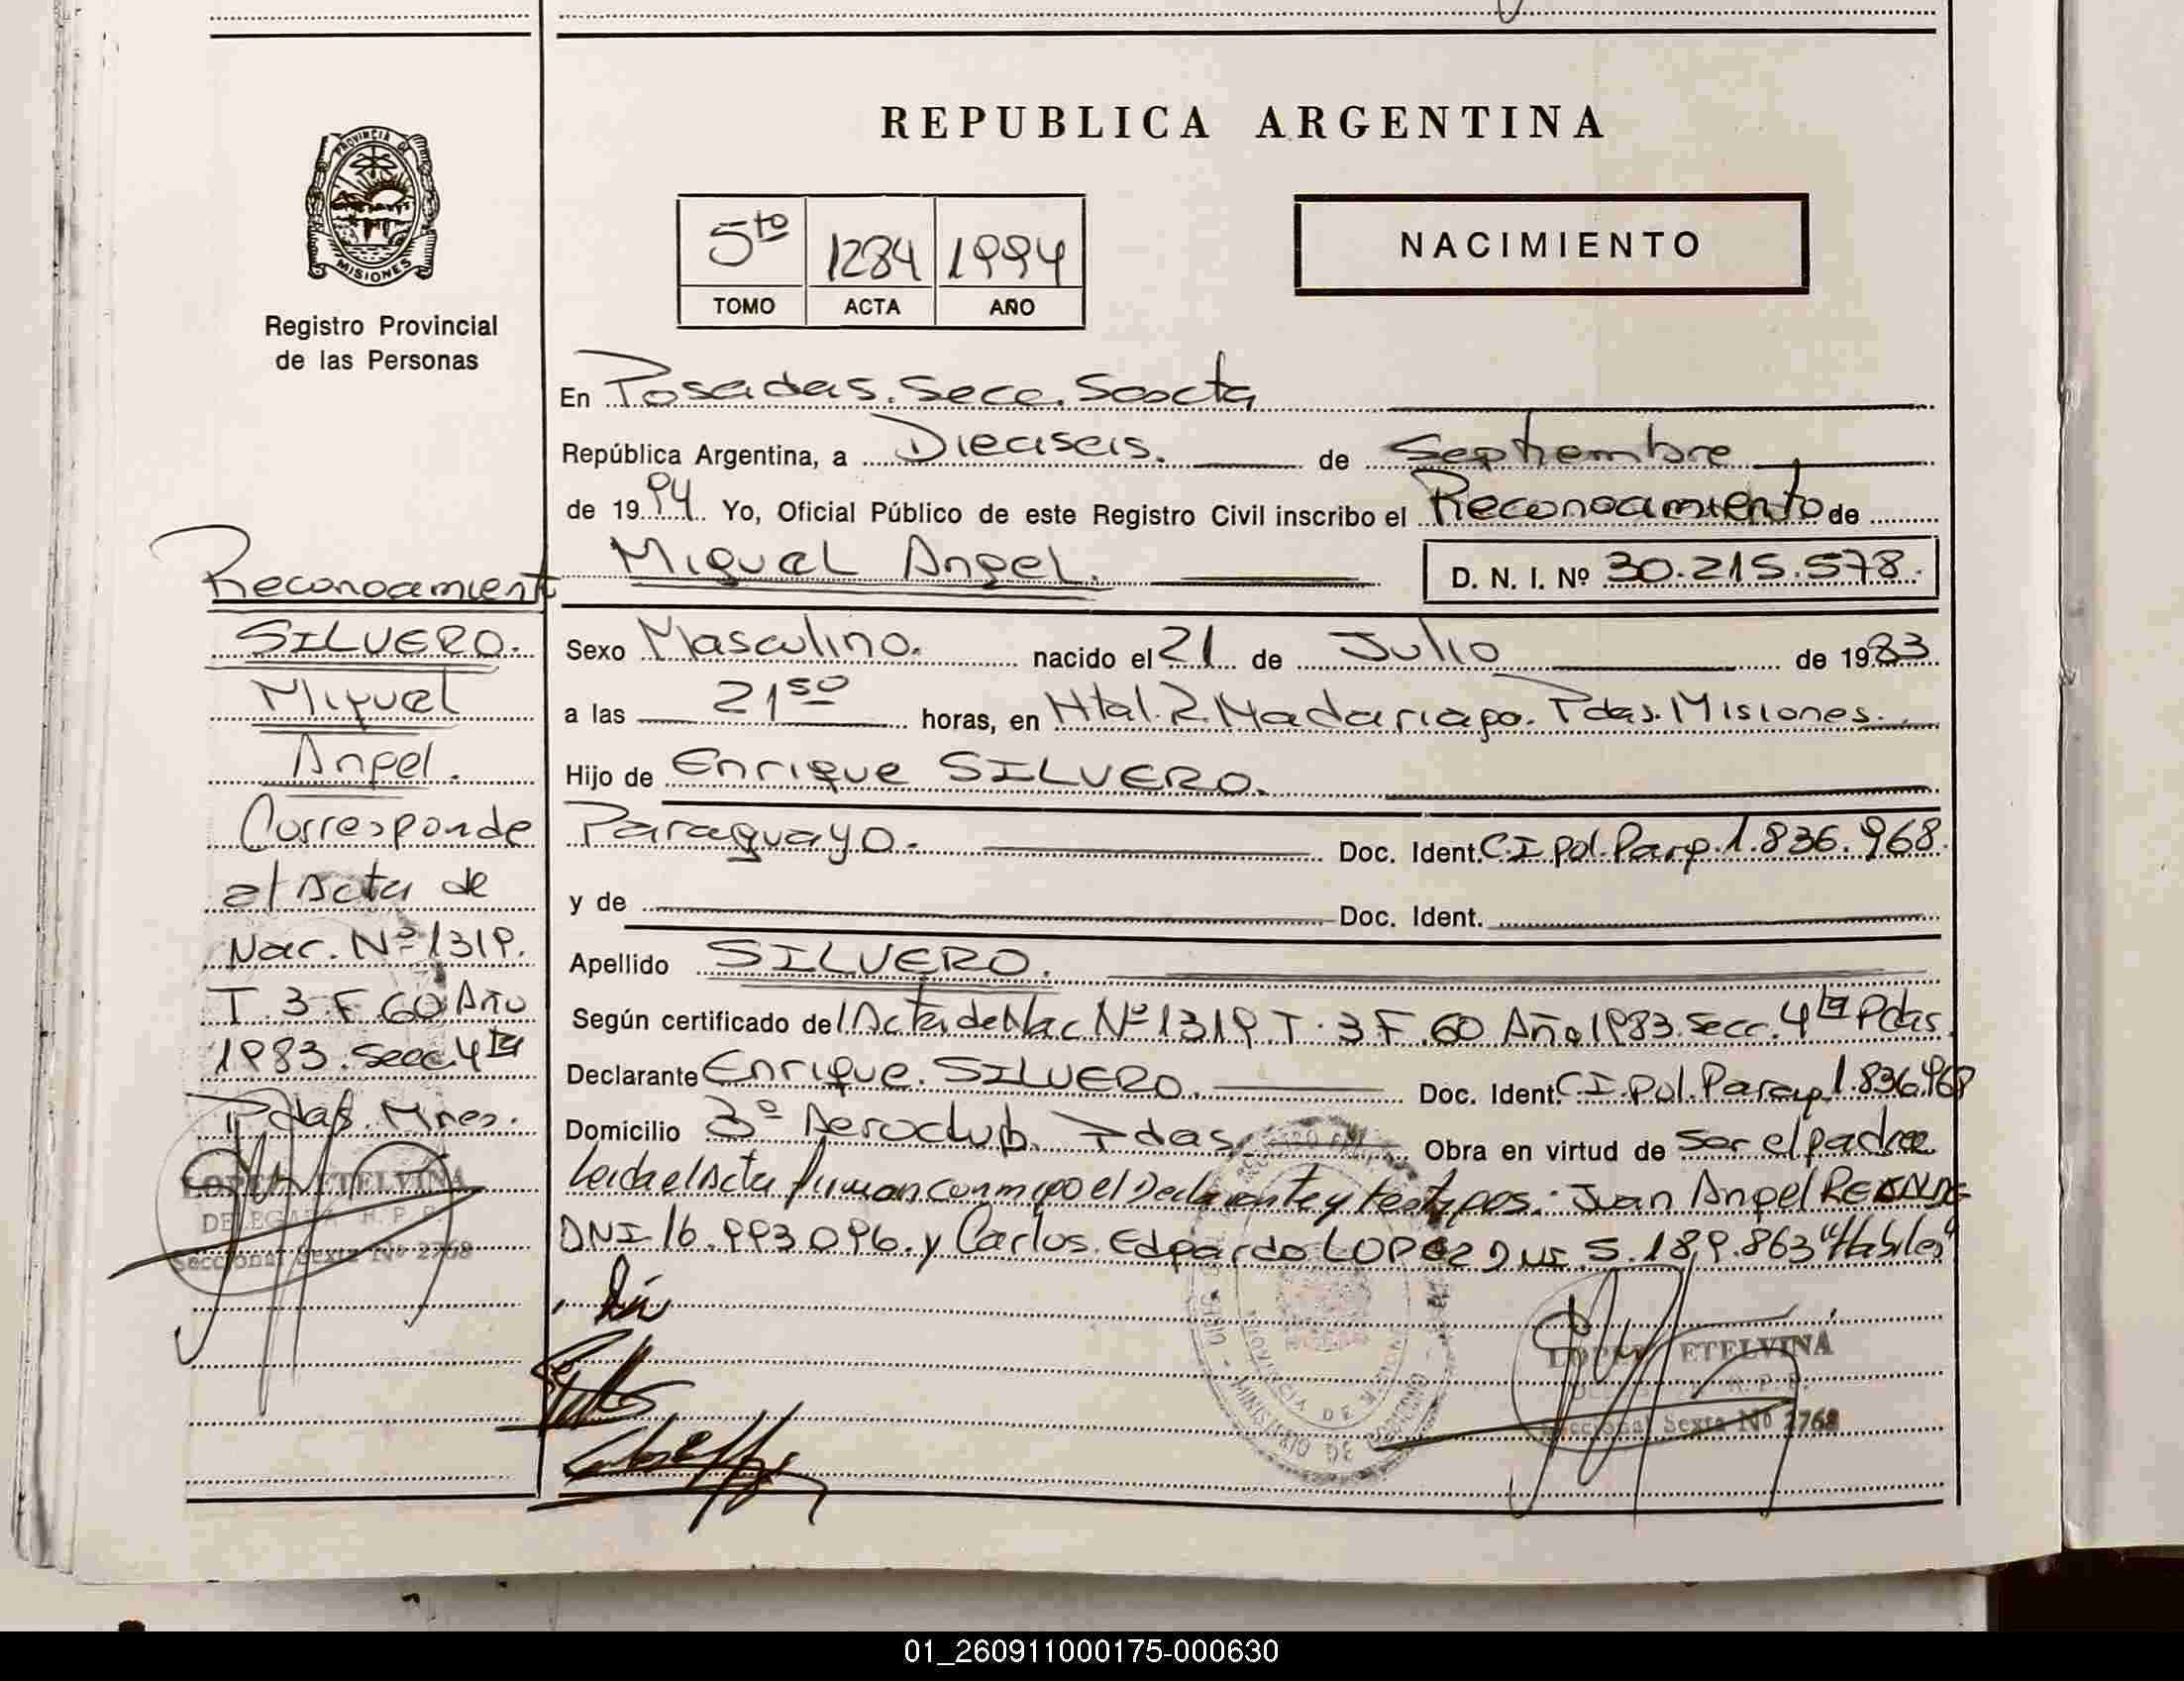 REPUBLICA ARGENTINA
PROVINCIA DE
MISIONES
Registro Provincial
de las Personas
5to 1284 1994
TOMO ACTA AÑO
NACIMIENTO
En Posadas. Secc. Sexta
República Argentina, a Dieciseis. de Septiembre
de 1994 Yo, Oficial Público de este Registro Civil inscribo el Reconocimiento de
Miguel Angel. D. N. I. Nº 30.215.578.
Sexo Masculino. nacido el 21 de Julio de 1983
a las 21 50 horas, en Htal. R. Madariaga. Pdas. Misiones.
Hijo de Enrique SILVERO.
Paraguayo. Doc. Ident. CI pol. Parg. 1.836.968.
y de Doc. Ident.
Apellido SILVERO.
Según certificado del Acta de Nac Nº 1319. T. 3 F. 60 Año 1983. Secc. 4ta Pdas.
Declarante Enrique. SILVERO. Doc. Ident. CI. Pol. Parag 1.836.968
Domicilio 3º Aeroclub. Pdas. Obra en virtud de Ser el padre
Leida el Acta firman conmigo el Declarante y testigos: Juan Angel
DNI 16.993.096. y Carlos. Edgardo LOPEZ DNI 5.189.863 "Habiles"
Reconocimient
SILVERO.
Miguel
Angel.
Corresponde
al Acta de
Nac. Nº 1319.
T. 3 F. 60 Año
1983. Secc 4ta
Pdas. Mnes.
LOPEZ ETELVINA
DELEGADA R. P. P.
Seccional Sexta Nº 2768
PROVINCIA DE MISIONES
MINISTERIO DE GOBIERNO
LOPEZ ETELVINA
R. P. P.
Seccional Sexta Nº 2768
01_260911000175-000630